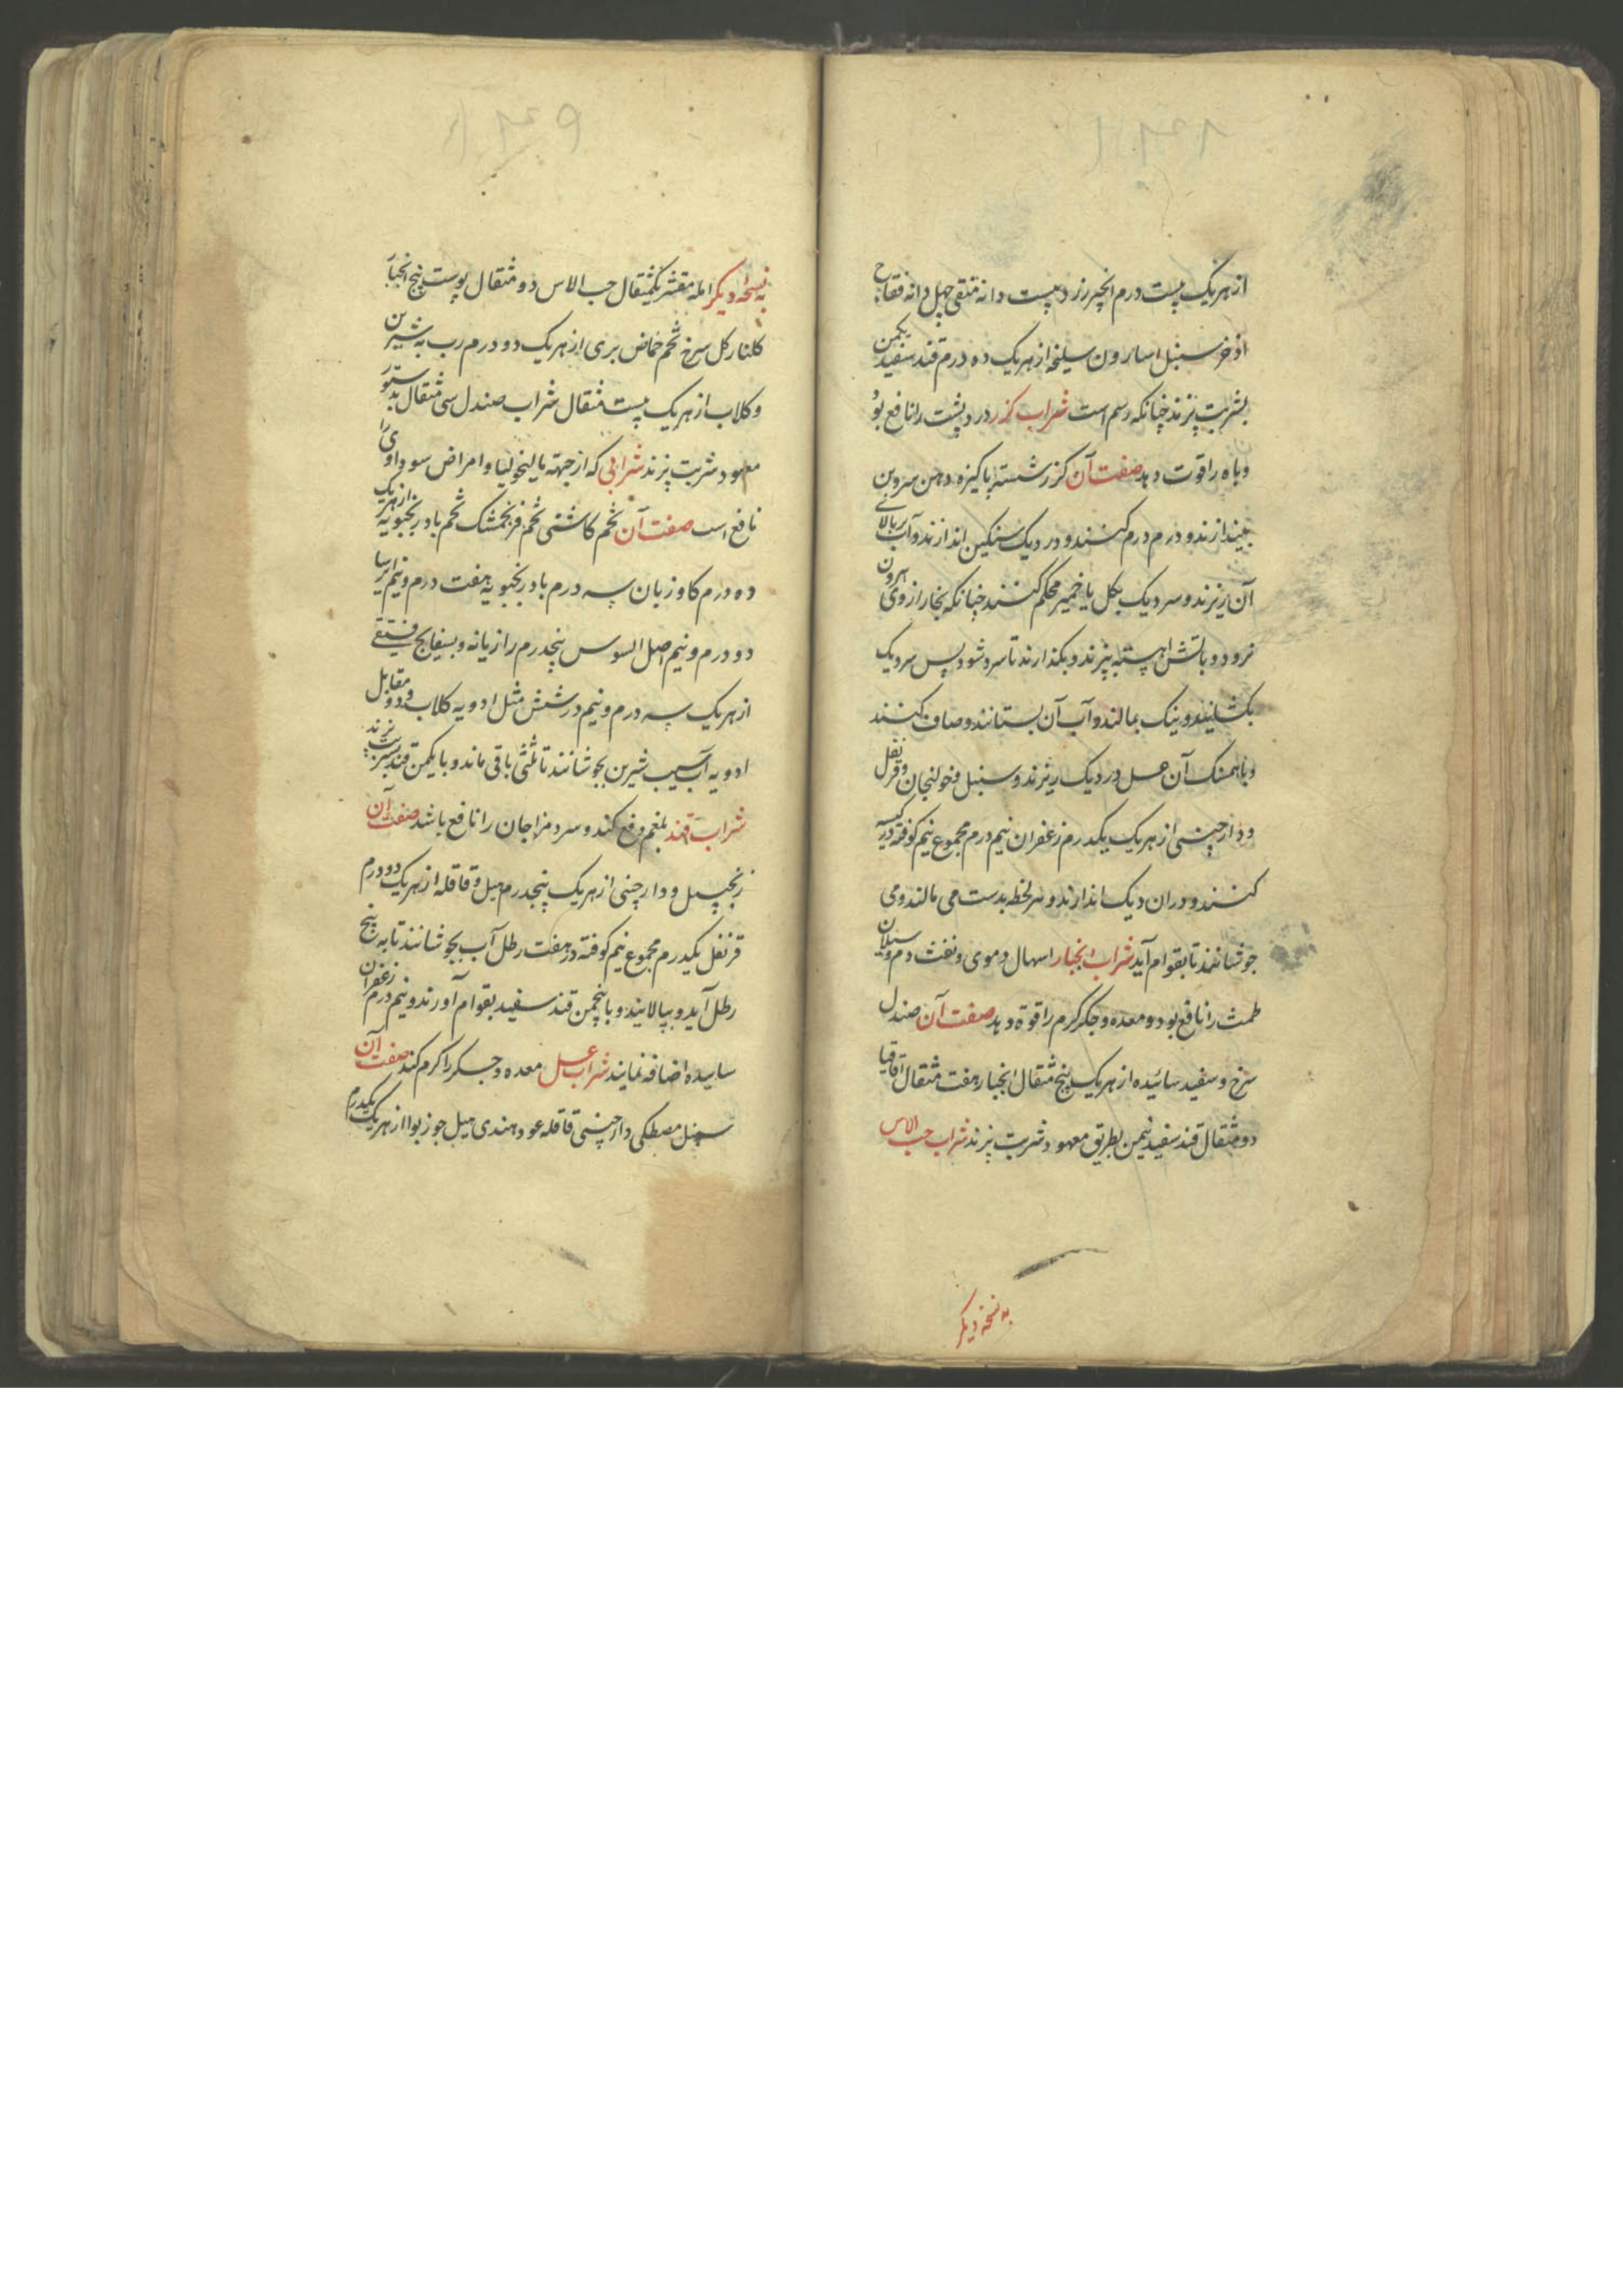 از هریک بیست درم انجیر زرد بیست دانه منقی چهل دانه فقاح
اذخر سنبل اسارون سلیخه از هریک ده درم قند سفید یکمن
بشربت پزند چنانکه رسم است شراب کزر درد پشت را نافع بود
و باه را قوت دهد صفت آن کزر شسته پاکیزه دهن سروبن
بیندازند و درم درم کنند و در دیک سنکین اندازند و آب بربالای
آن ریزند و سر دیک بکل یا خمیر محکم کنند چنانکه بخار از وی بیرون
نرود و باتش اهسته بپزند و بکذارند تا سرد شود پس سر دیک
بکشایند و نیک بمالند و آب آن بستانند و صاف کنند
و باهمسنک آن عسل در دیک ریزند و سنبل و خولنجان و قرنفل
و دارچینی از هریک یکدرم زعفران نیم درم مجموع نیم کوفته در کیسه
کنند و دران دیک اندازند و هر لحظه بدست می مالند و می
جوشانند تا بقوام آید شراب انجبار اسهال دموی و نفث دم و سیلان
طمث را نافع بود و معده و جکر کرم را قوة دهد صفت آن صندل
سرخ و سفید سائیده از هریک پنج مثقال انجبار هفت مثقال اقاقیا
دو مثقال قند سفید نیمن بطریق معهود شربت پزند شراب حب الاس
به نسخه دیکر
به نسخه دیکر امله مقشر یکمثقال حب الاس دو مثقال پوست بیخ انجبار
کلنار کل سرخ تخم حماض بری از هریک دو درم رب به شیرین
و کلاب از هریک بیست مثقال شراب صندل سی مثقال بدستور
معهود شربت پزند شرابی که از جهته مالیخولیا و امراض سوداوی را
نافع است صفت آن تخم کاشنی تخم فرنجمشک تخم بادرنجبویه از هریک
ده درم کاوزبان سه درم بادرنجبویه هفت درم و نیم ایرسا
دو درم و نیم اصل السوس پنجدرم رازیانه و بسفایج فستقی
از هریک سه درم و نیم در شش مثل ادویه کلاب و دو مقابل
ادویه آب سیب شیرین بجوشانند تا ثلثی باقی ماند و با یکمن قند بشربت پزند
شراب قند بلغم دفع کند و سرد مزاجان را نافع باشد صفت آن
زنجبیل و دارچینی از هریک پنجدرم هیل و قاقله از هریک دو درم
قرنفل یکدرم مجموع نیم کوفته در هفت رطل آب بجوشانند تا به پنج
رطل آید و بپالایند و با پنجمن قند سفید بقوام آورند و نیم درم زعفران
ساییده اضافه نمایند شراب عسل معده و جسکر را کرم کند صفت آن
سنبل مصطکی دارچینی قاقله عود هندی هیل جوزبوا از هریک یکدرم